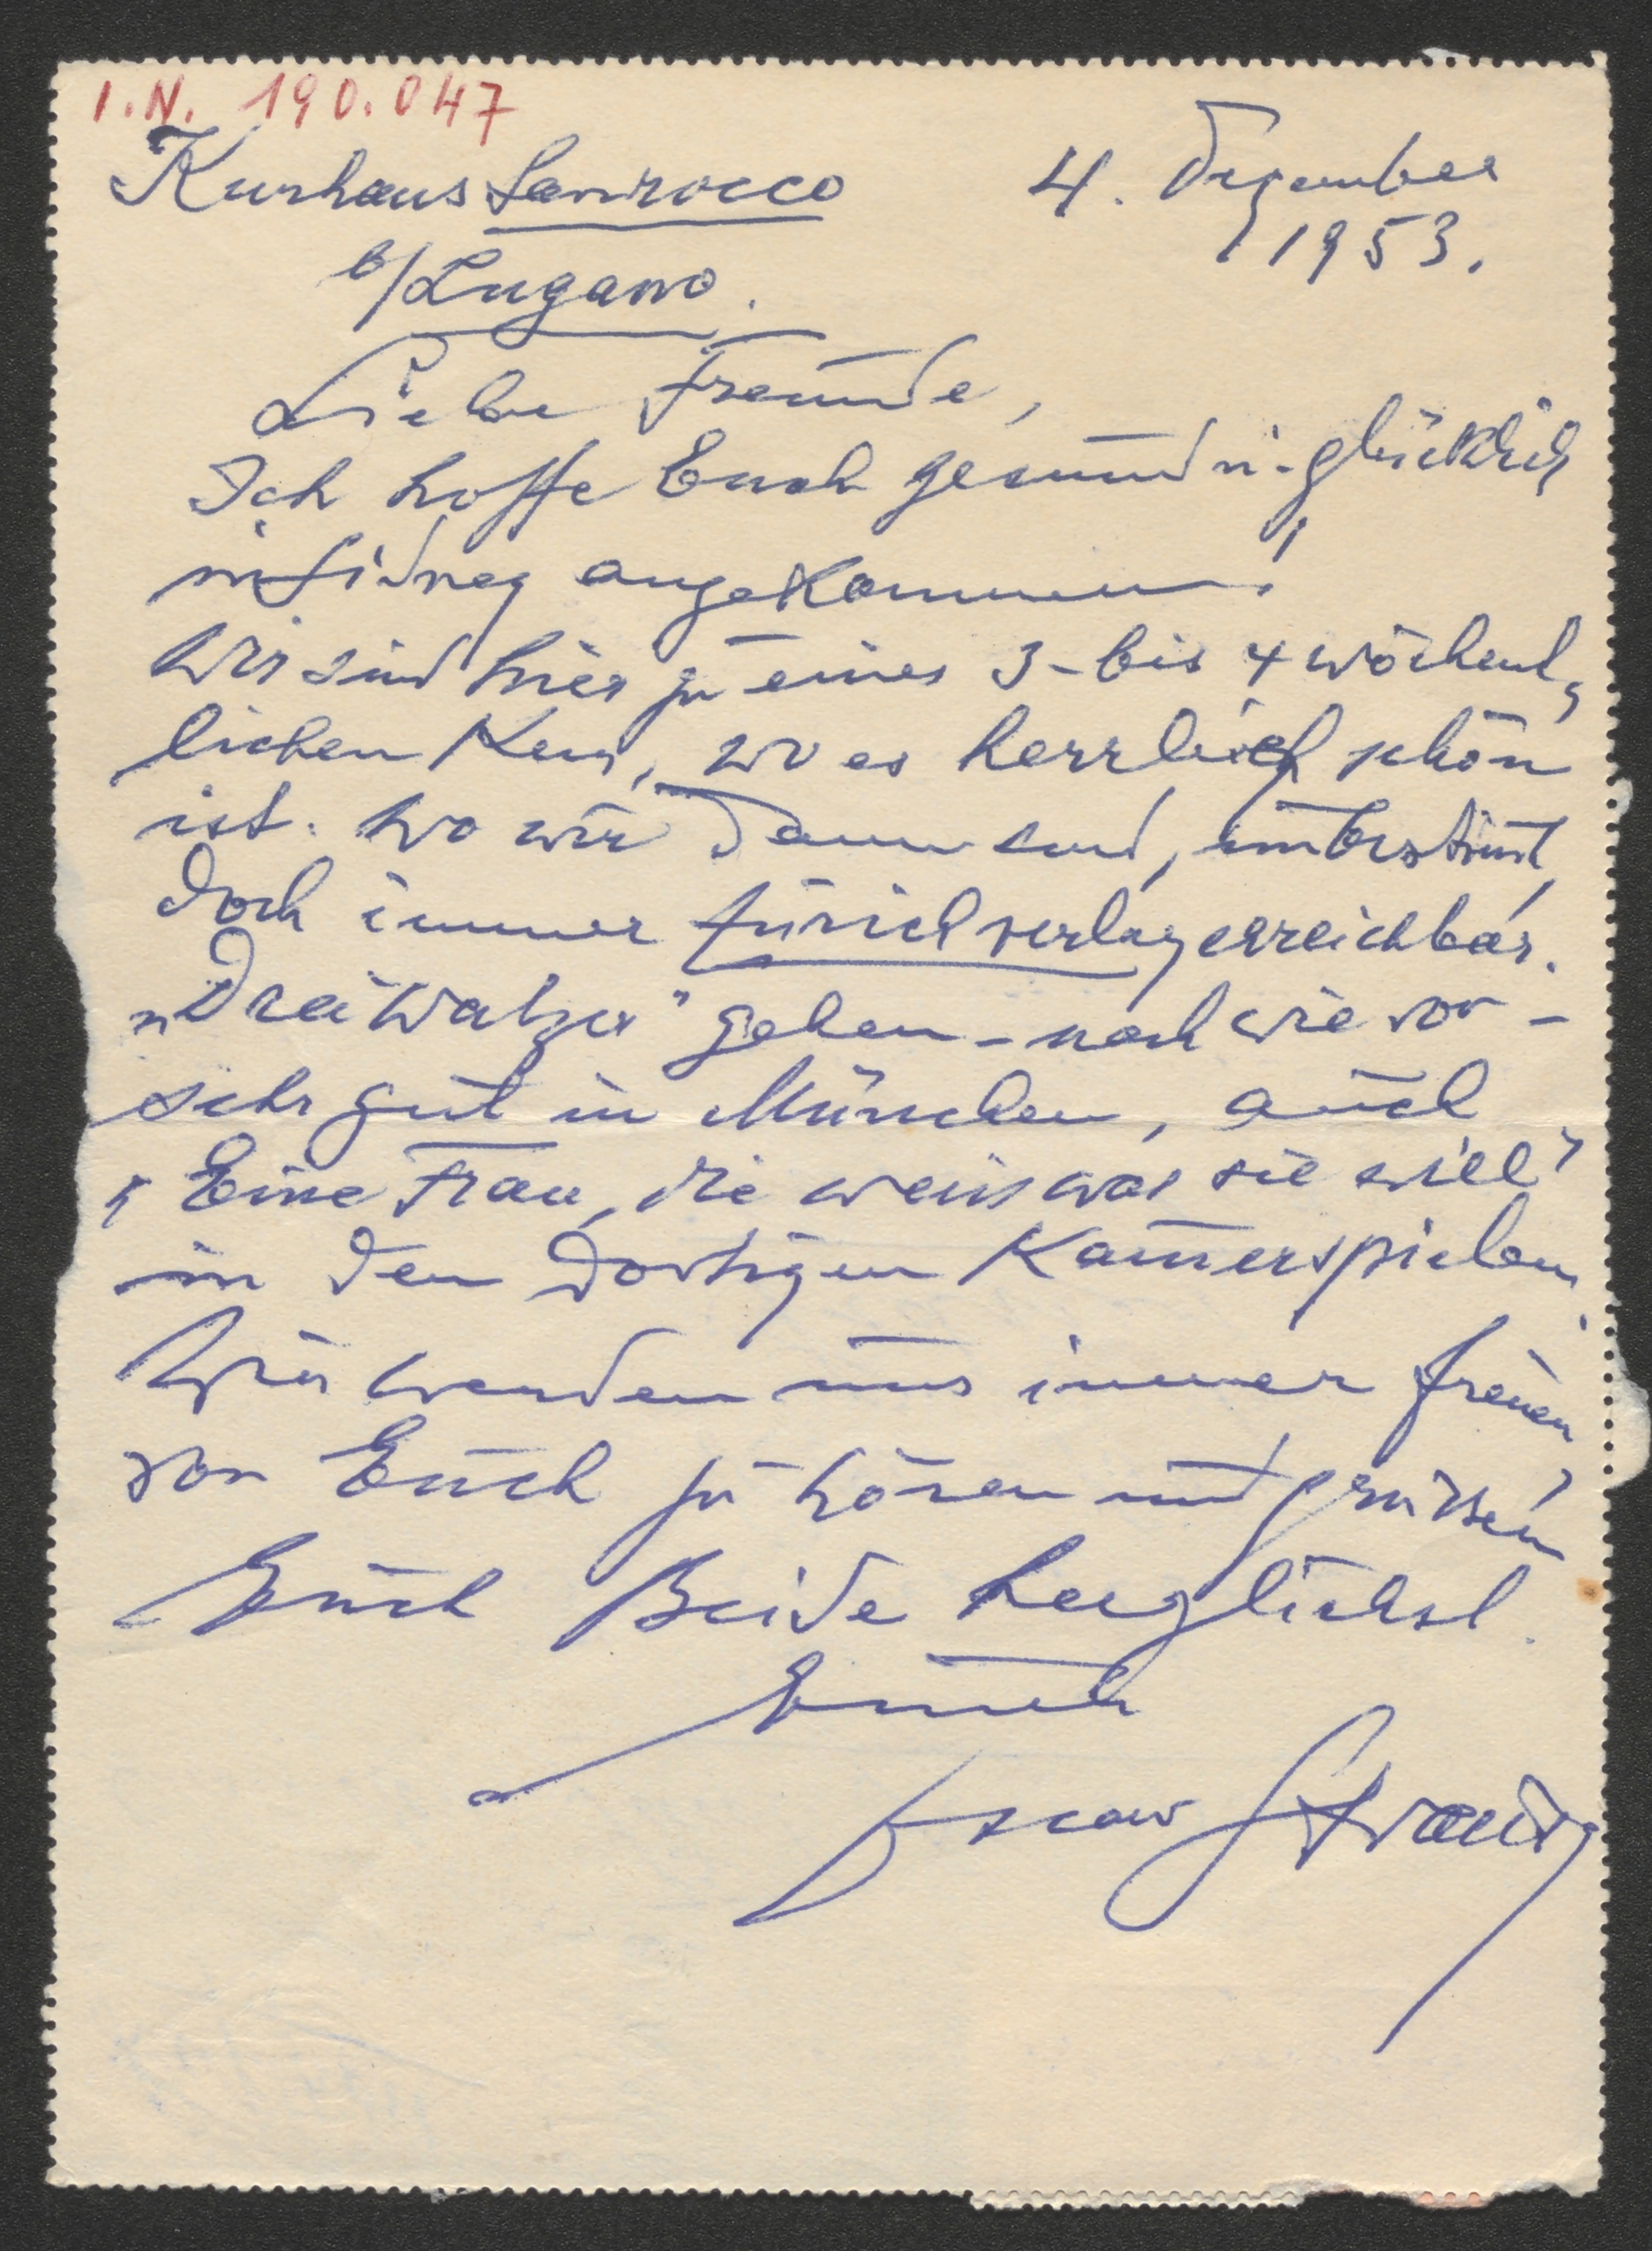 I.N. 190.047
Kurhaus Sanrocco
4. Dezember
1953.
b/Lugano.
Liebe Freunde,
Ich hoffe Euch gesund u. glücklich
in Sidney angekommen!
Wir sind hier zu einer 3- bis 4 wöchent-
lichen Kur, wo es herrlich schön
ist. Wo wir dann sind, unbestimt,
doch immer Zürichverlag erreichbar.
„Drei Walzer" gehen - nach wie vor -
sehr gut in München, auch
„Eine Frau, die weiss was sie will"
in den dortigen Kam̅erspielen.
Wir werden uns immer freuen
von Euch zu hören und grüssen
Euch Beide herzlichst.
Euer
Oscar Straus